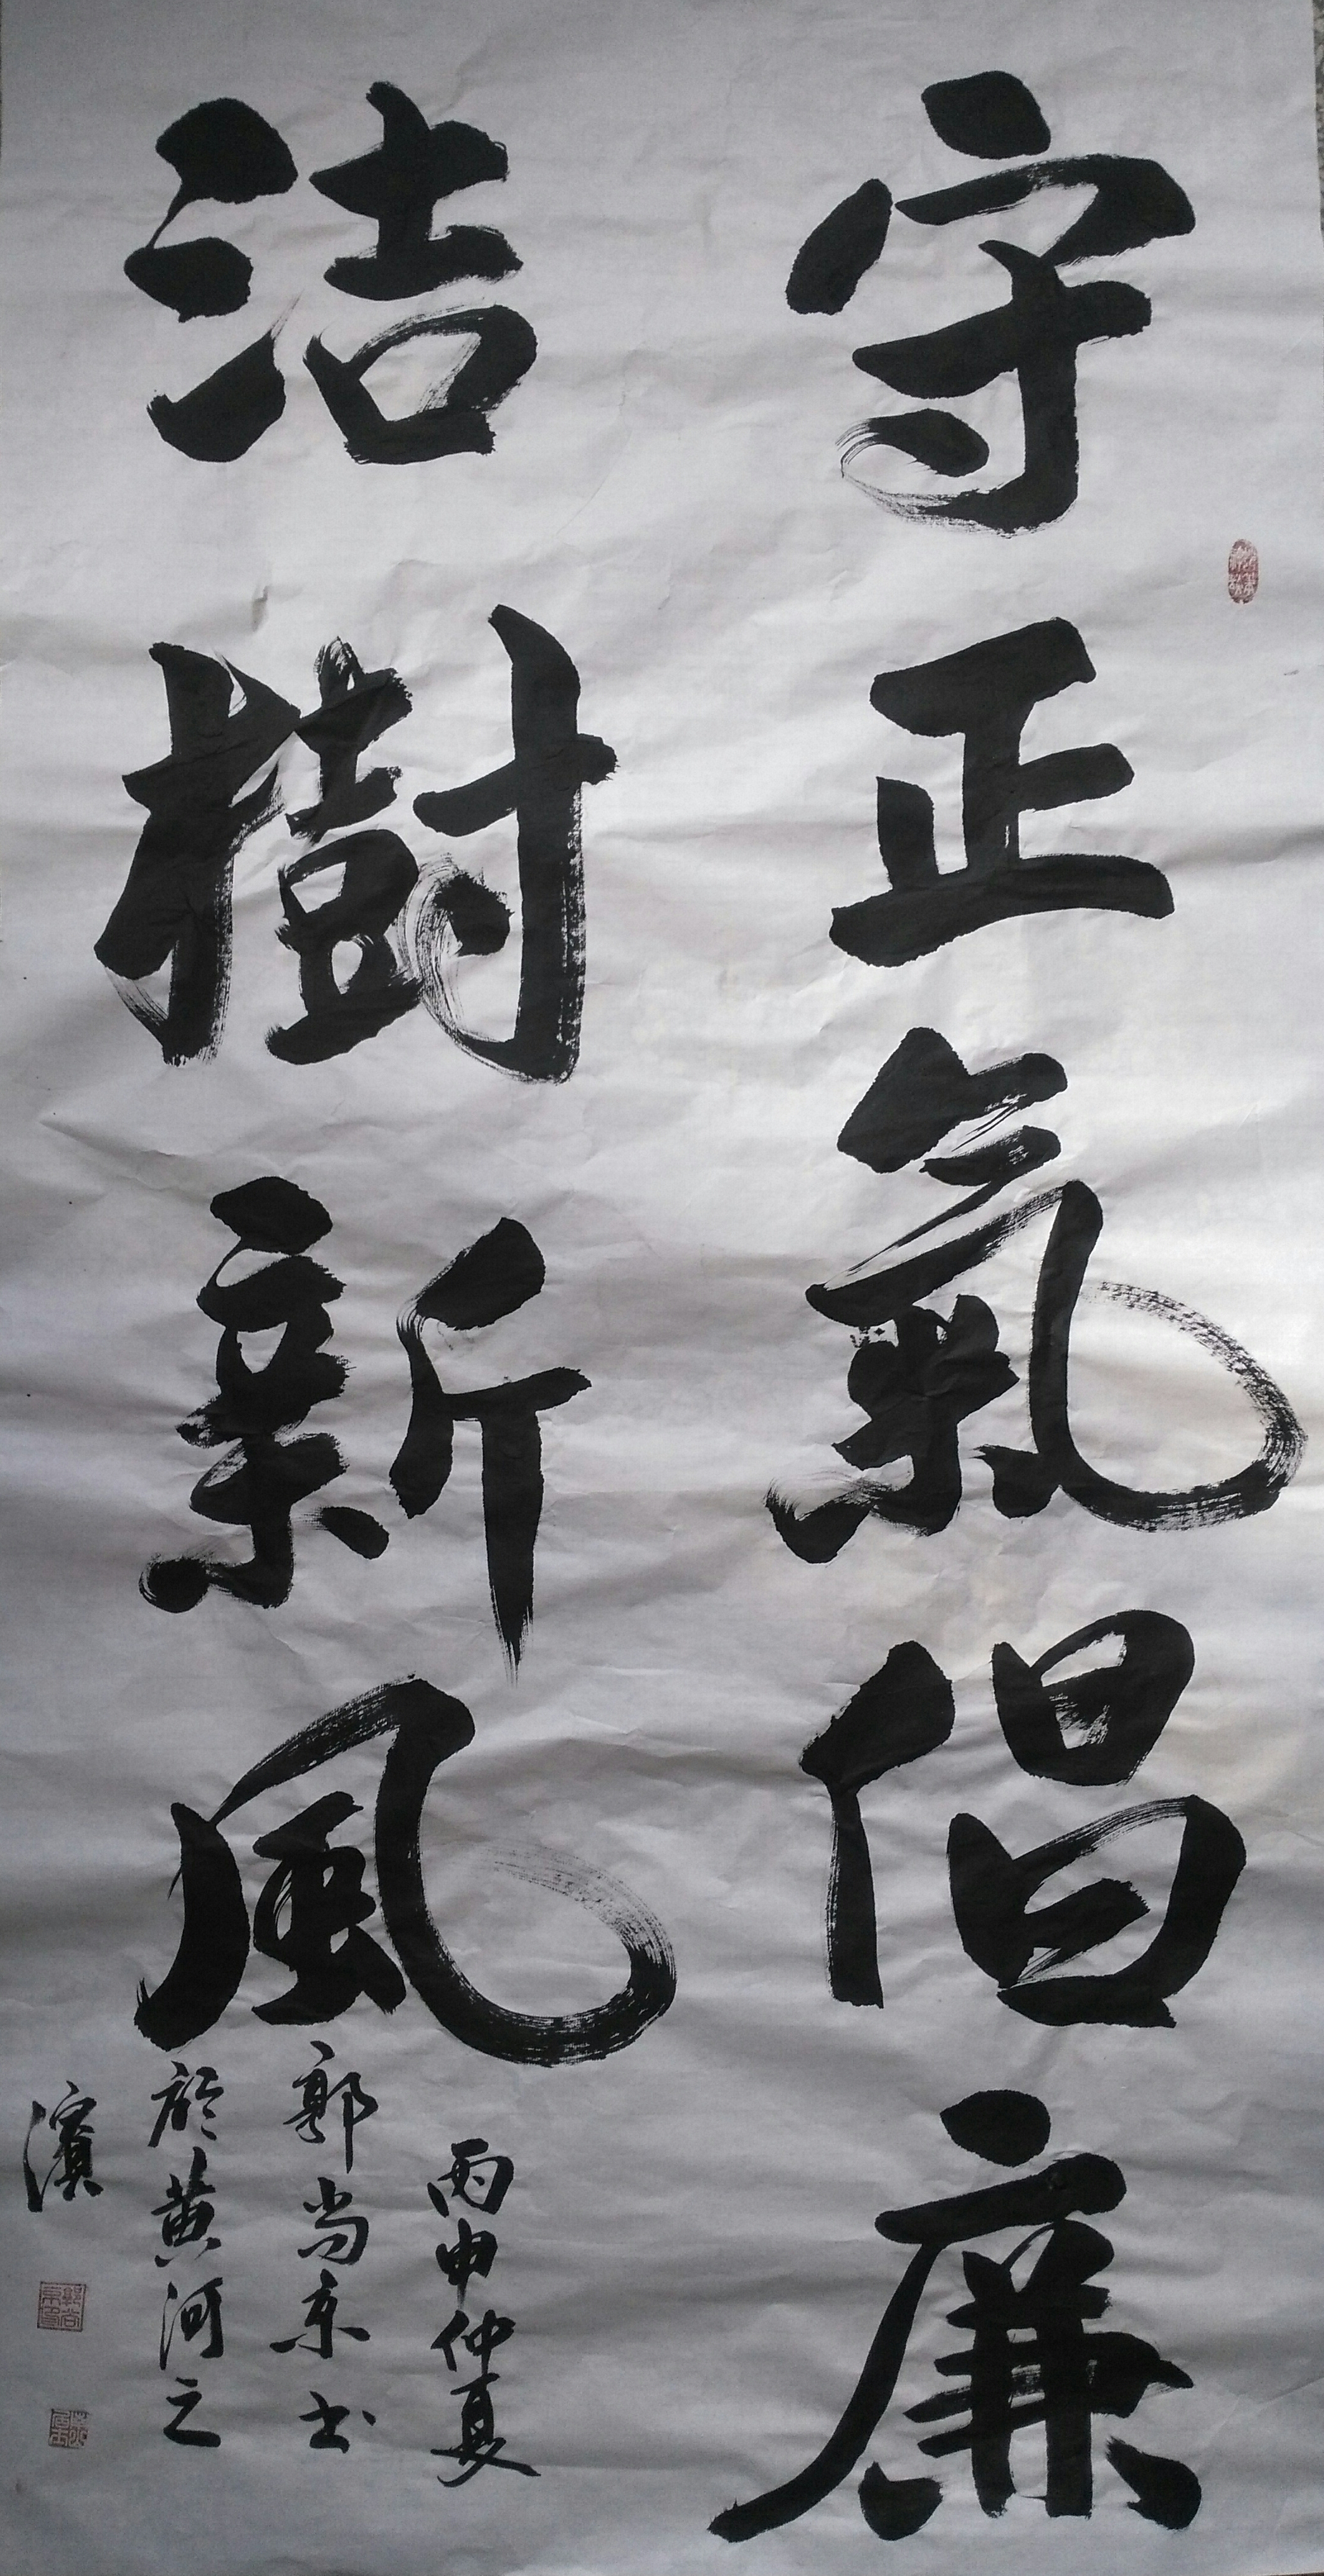 守正氣倡廉
洁樹新風
丙申仲夏
郭尚京书
於黄河之
濱